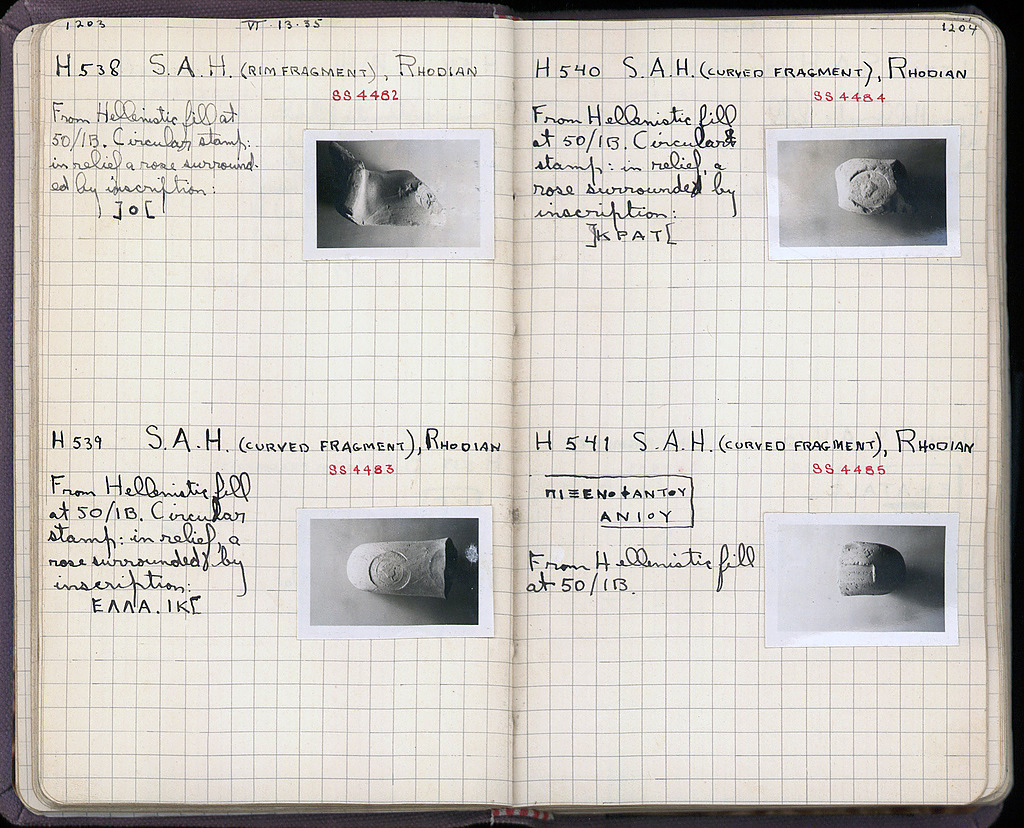 1203
VI-13-35
H 538 S.A.H. (RIM FRAGMENT), RHODIAN
SS 4482
From Hellenistic fill at
50/IB. Circular stamp:
in relief a rose surround-
ed by inscription:
]O[
H 539 S.A.H. (CURVED FRAGMENT), RHODIAN
SS 4483
From Hellenistic fill
at 50/IB. Circular
stamp: in relief, a
rose surrounded by
inscription:
ΕΛΛΑ.ΙΚ[
1204
H 540 S.A.H. (CURVED FRAGMENT), RHODIAN
SS 4484
From Hellenistic fill
at 50/IB. Circular
stamp: in relief, a
rose surrounded by
inscription:
]ΚΡΑΤ[
H 541 S.A.H. (CURVED FRAGMENT), RHODIAN
SS 4485
ΠΙΞΕΝΟΦΑΝΤΟΥ
ΑΝΙΟΥ
From Hellenistic fill
at 50/IB.